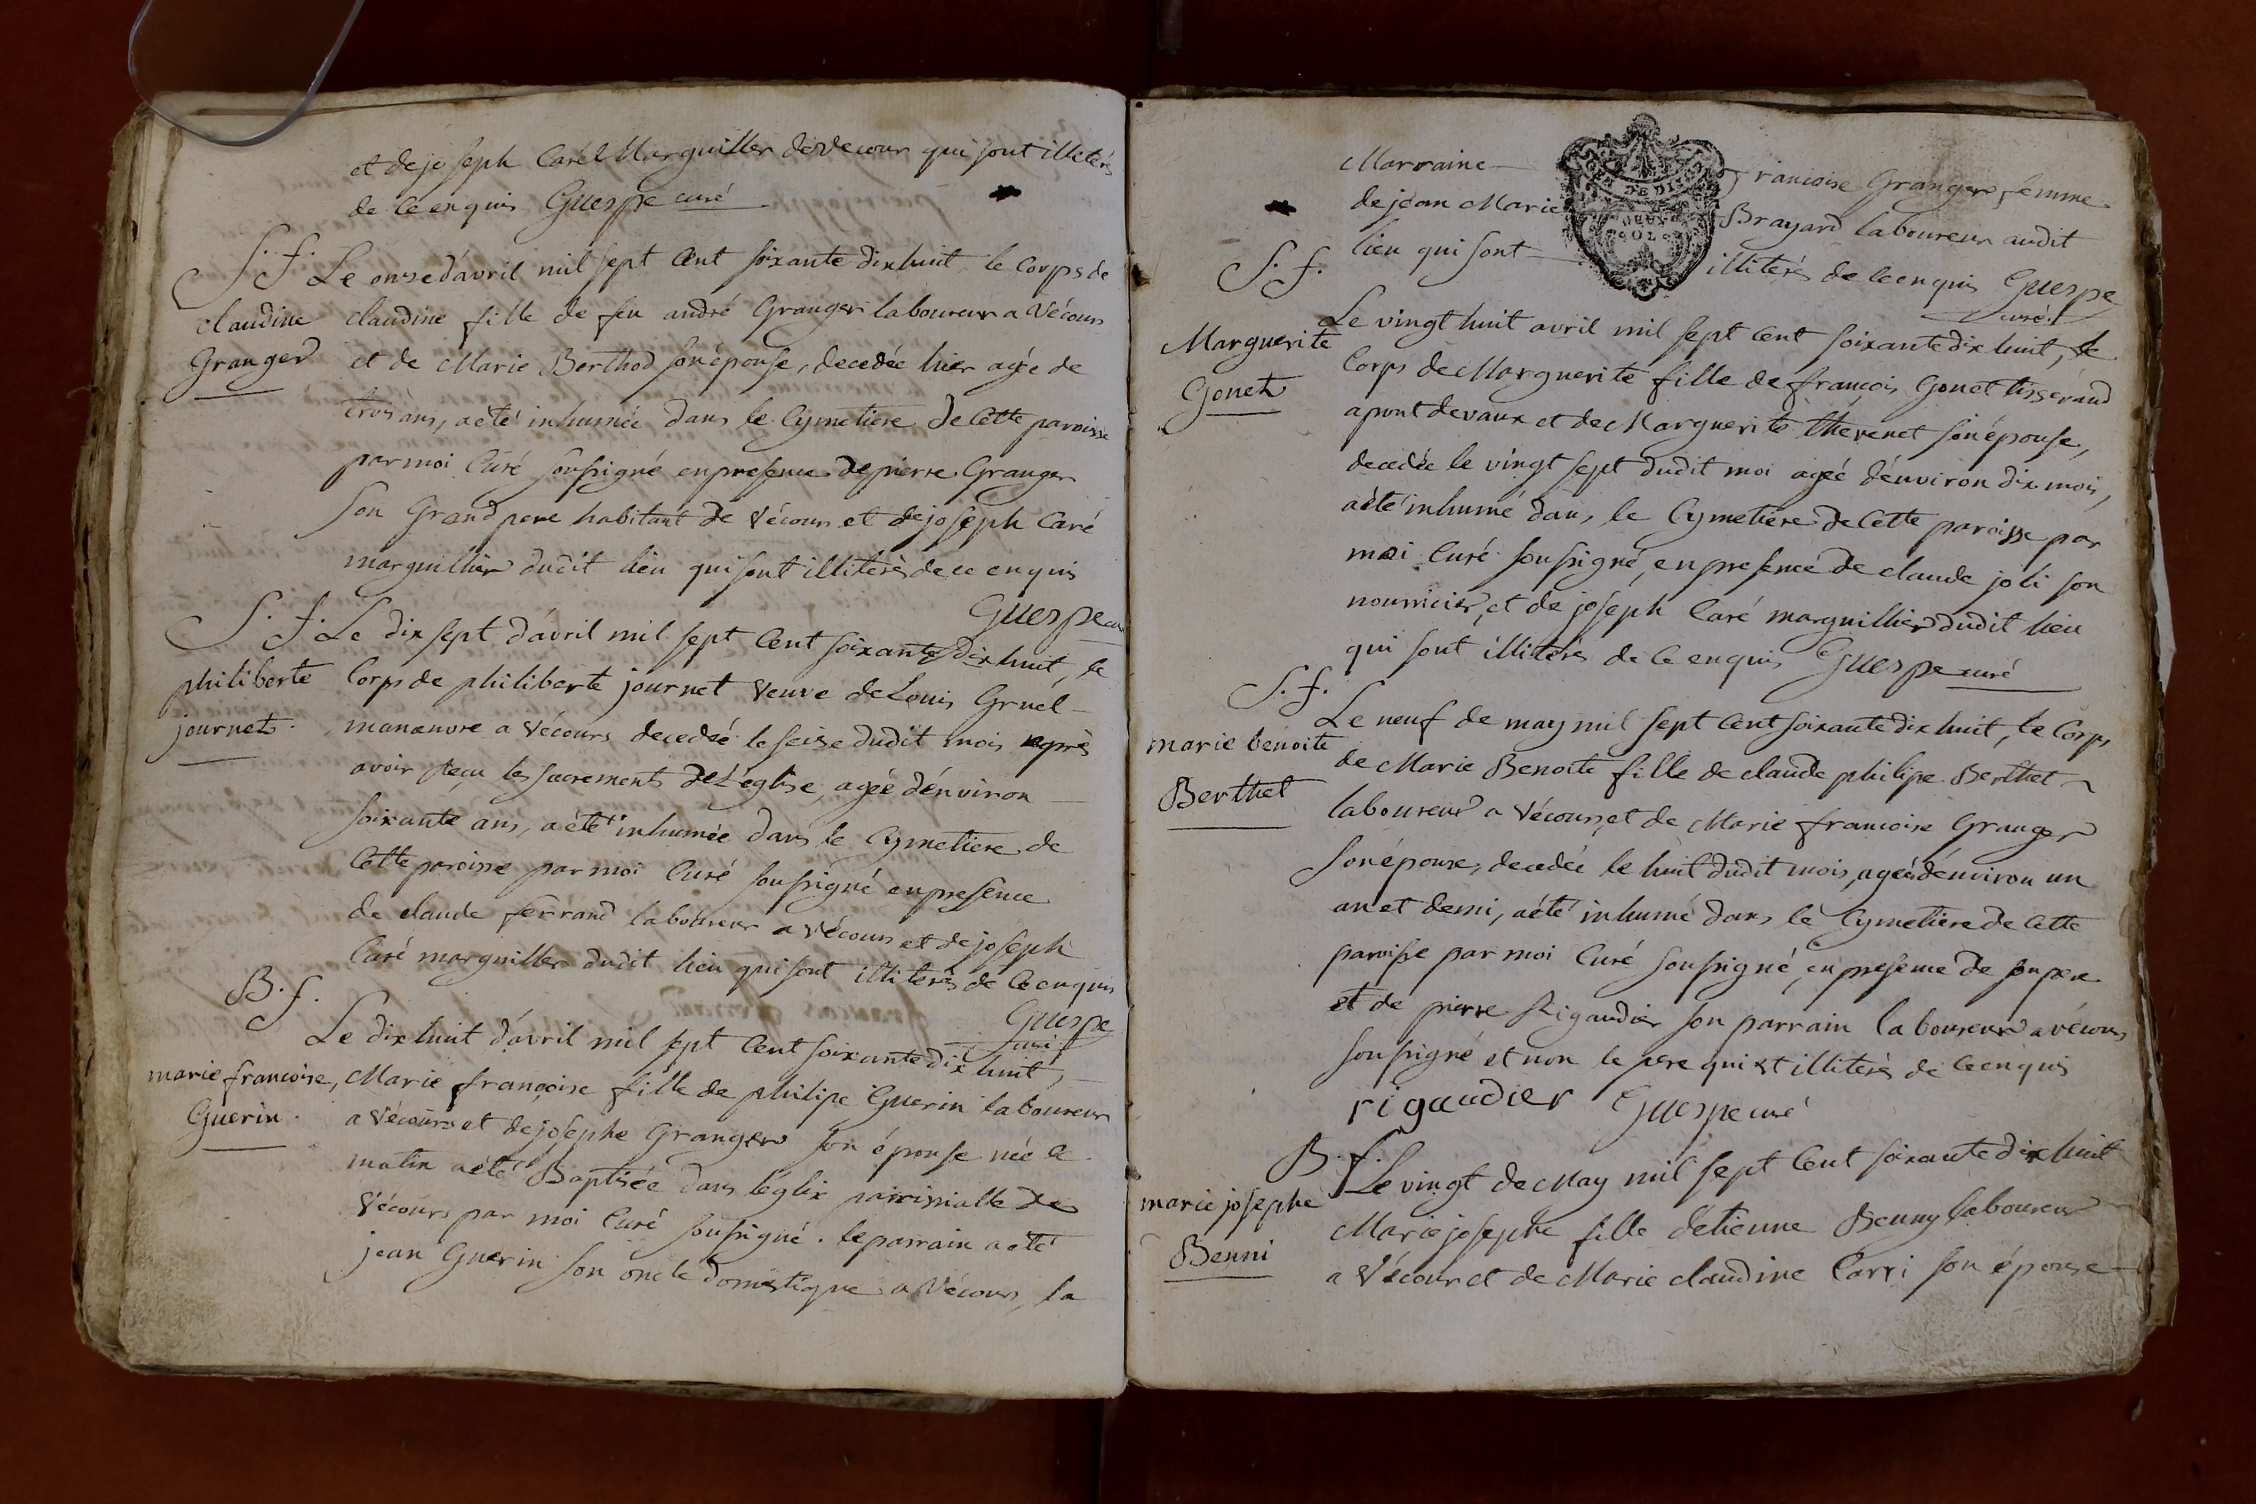 et de joseph Caré Marguiller de vecour qui sont illiterés
de ce enquis Guespe curé
S. f. Le onse d'avril mil sept Cent soixante dix huit, le Corps de
claudine
Granger
claudine fille de feu andré Granger laboureur a Vécours
et de Marie Berthod son épouse, decedée hier agée de
trois ans, a été inhumée dans le Cymetiere de Cette paroisse
par moi Curé soussigné en presence de pierre Granger
son Grand pere habitant de Vécours et de joseph Caré
marguillier dudit lieu qui sont illiterés de ce enquis
Guespe curé
S. f. Le dix sept d'avril mil sept Cent soixante dix huit, le
philiberte
journet
Corps de philiberte journet Veuve de Louis Gruel
manœuvre a Vécours decedeé le seise dudit mois après
avoir reçu les sacrements de L'eglise, agée d'environ
soixante ans, a été inhumée dans le Cymetiere de
Cette paroisse par moi Curé soussigné en presence
de claude ferrand laboureur a Vécours et de joseph
Caré marguiller dudit lieu qui sont illiterés de ce enquis
Guespe
curé
B. f.
Le dix huit d'avril mil sept Cent soixante dix huit,
marie francoise
Guerin
Marie françoise fille de philipe Guerin laboureur
a Vécours et de josephe Granger son épouse née le
matin a été Baptisée dans l'eglise paroissialle de
Vécours par moi Curé soussigné. le parrain a été
jean Guerin son oncle domestique a Vécours, la
Marraine francoise Granger femme
de jean Marie Brayard laboureur audit
lieu qui sont illiterés de ce enquis Guespe
curé
S. f.
Marguerite
Gonet
Le vingt huit avril mil sept Cent soixante dix huit, le
Corps de Marguerite fille de françois Gonet tisserand
a pont de vaux et de Marguerite thevenet son épouse,
decedée le vingt sept dudit moi ageé d'environ dix mois,
a été inhumé dans le Cymetiere de Cette paroisse par
moi Curé soussigné, en presence de claude joli son
nourricier, et de joseph Caré marguillier dudit lieu
qui sont illiterés de ce enquis Guespe curé
S. f.
Le neuf de may mil sept Cent soixante dix huit, le Corps
marie benoite
Berthet
de Marie Benoite fille de claude philipe Berthet
laboureur a Vécours, et de Marie francoise Granger
son épouse, decedée le huit dudit mois, ageé d'environ un
an et demi, a été inhumé dans le Cymetiere de Cette
paroisse par moi Curé soussigné, en presence de son pere
et de pierre Rigaudier son parrain laboureur a vécours
soussigné et non le pere qui est illiterés de ce enquis
rigaudier Guespe curé
B. f. Le vingt de May mil sept Cent soixante dix huit
marie josephe
Benni
Marie josephe fille d'etienne Benny laboureur
a Vécour et de Marie claudine Carri son épouse